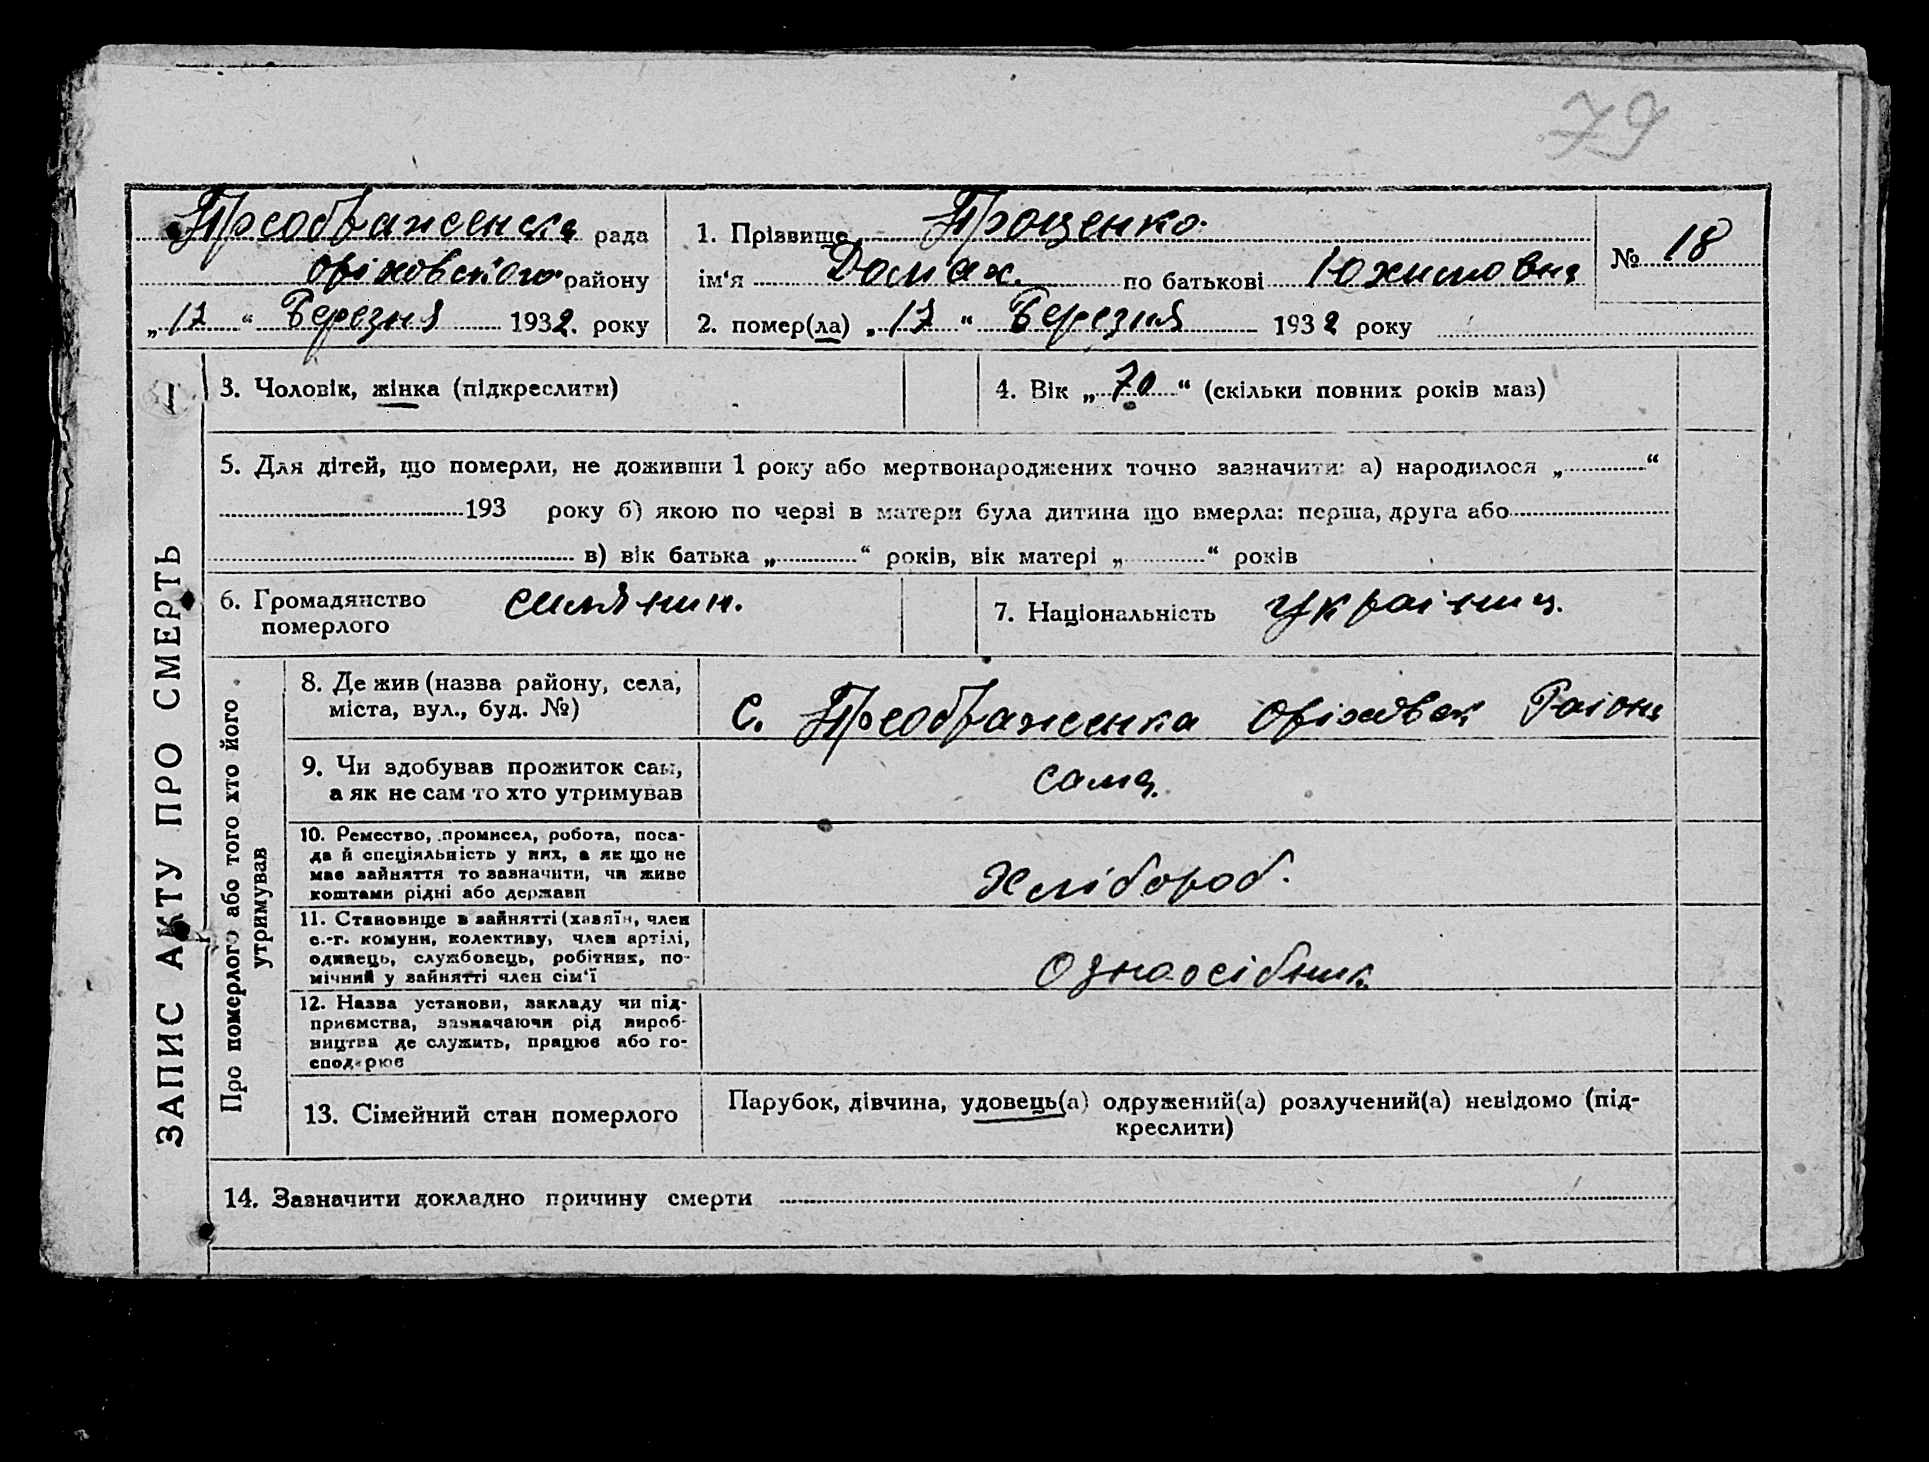 79
Преображенска рада
Оріховського району
„17“ Березня 1932. року
1. Прізвище Проценко.
ім‘я Домах. по батькові Юхимовна
2. помер(ла) „17“ Березня 1932 року
№ 18
1
3. Чоловік, жінка (підкреслити)
4. Вік „70“ (скільки повних років мав)
5. Для дітей, що померли, не доживши 1 року або мертвонароджених точно зазначити: а) народилося „ “
193 року б) якою по черзі в матери була дитина що вмерла: перша, друга або
в) вік батька „ “ років, вік матері „ “ років
6. Громадянство
померлого
силянин.
7. Національність українц.
ЗАПИС АКТУ ПРО СМЕРТЬ
Про померлого або того хто його
утримував
8. Де жив (назва району, села,
міста, вул., буд. №)
с. Преображенка Оріховск Раіона
9. Чи здобував прожиток сам,
а як не сам то хто утримував
сама.
10. Ремество, промисел, робота, поса-
да й спеціяльність у них, а як що не
має зайняття то зазначити, чи живе
коштами рідні або держави
Хлібороб.
11. Становище в зайнятті (хазяїн, член
с.-г. комуни, колективу, член артілі,
одинець, службовець, робітник, по-
мічний у зайнятті член сім‘ї
Одноосібник.
12. Назва установи, закладу чи під-
приємства, зазначаючи рід вироб-
ництва де служить, працює або го-
сподарює
13. Сімейний стан померлого
Парубок, дівчина, удовець(а) одружений(а) розлучений(а) невідомо (під-
креслити)
14. Зазначити докладно причину смерти